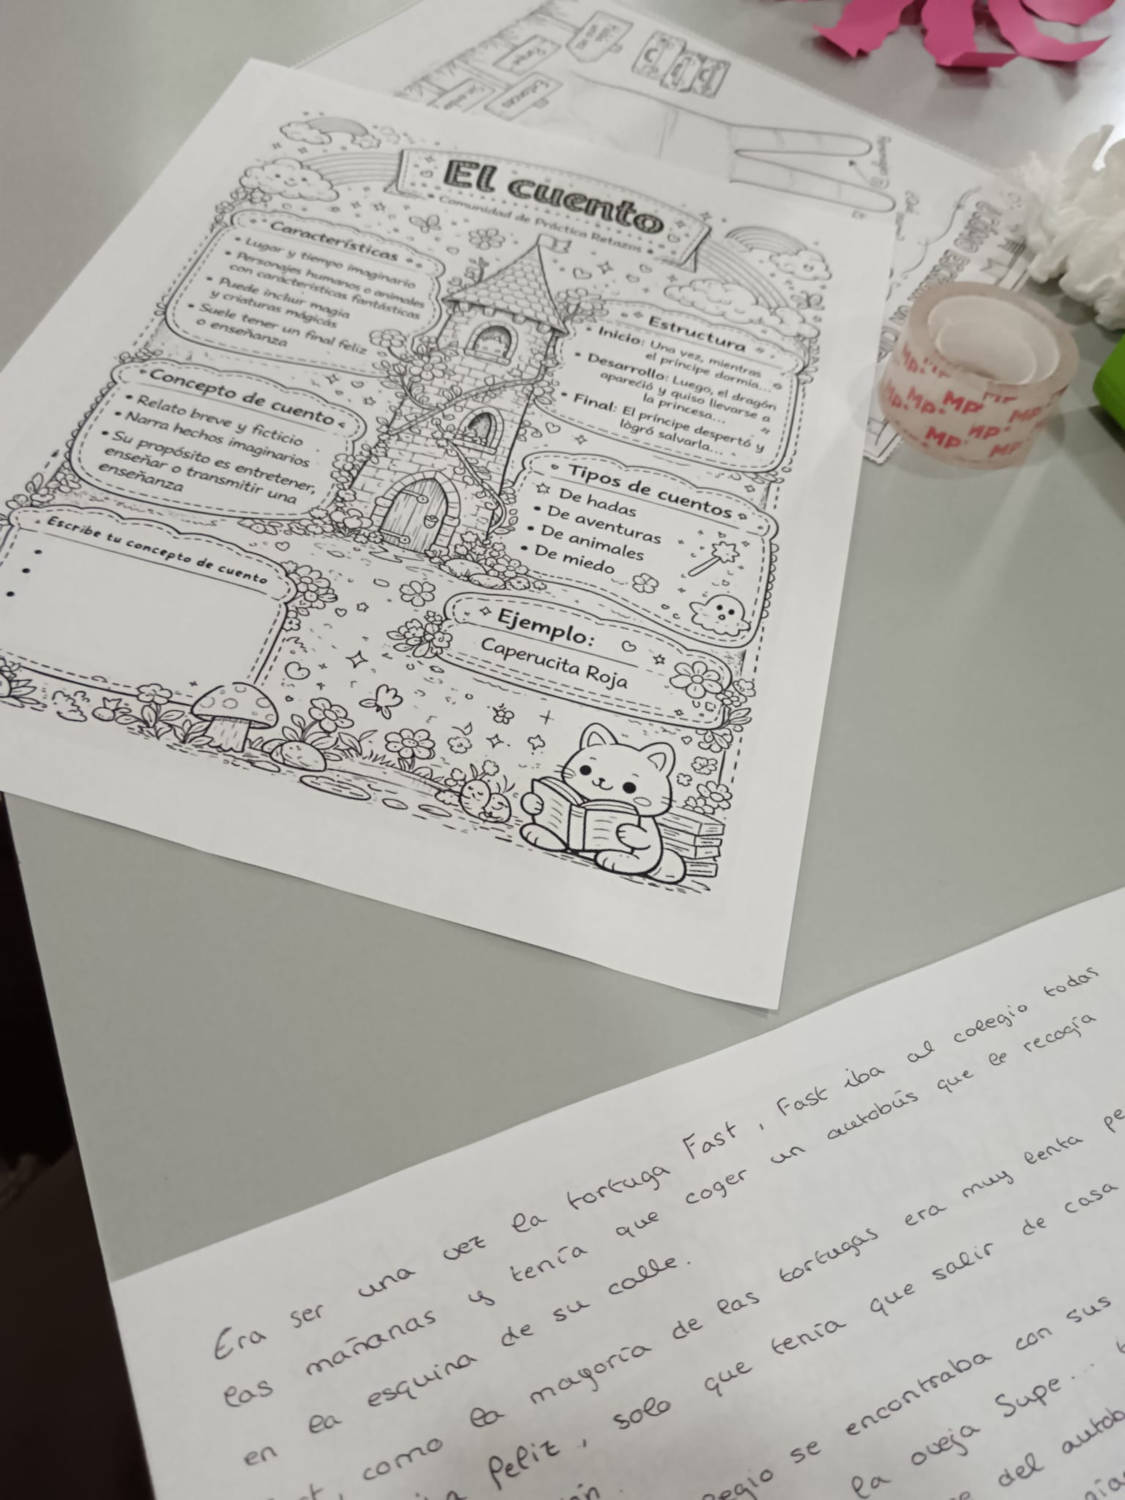 El cuento
Comunidad de Práctica Retazos
Características
Lugar y tiempo imaginario
Personajes humanos o animales
con características fantásticas
Puede incluir magia
y criaturas mágicas
Suele tener un final feliz
o enseñanza
Concepto de cuento
Relato breve y ficticio
Narra hechos imaginarios
Su propósito es entretener,
enseñar o transmitir una
enseñanza
Escribe tu concepto de cuento
Estructura
Inicio: Una vez, mientras
el príncipe dormía...
Desarrollo: Luego, el dragón
apareció y quiso llevarse a
la princesa...
Final: El príncipe despertó y
logró salvarla...
Tipos de cuentos
De hadas
De aventuras
De animales
De miedo
Ejemplo:
Caperucita Roja
MP
MP
MP
MP
MP
Era ser una vez la tortuga Fast, Fast iba al colegio todas
las mañanas y tenía que coger un autobús que le recogía
en la esquina de su calle.
como la mayoría de las tortugas era muy lenta
feliz, solo que tenía que salir de casa
se encontraba con sus
la oveja Supe...
del